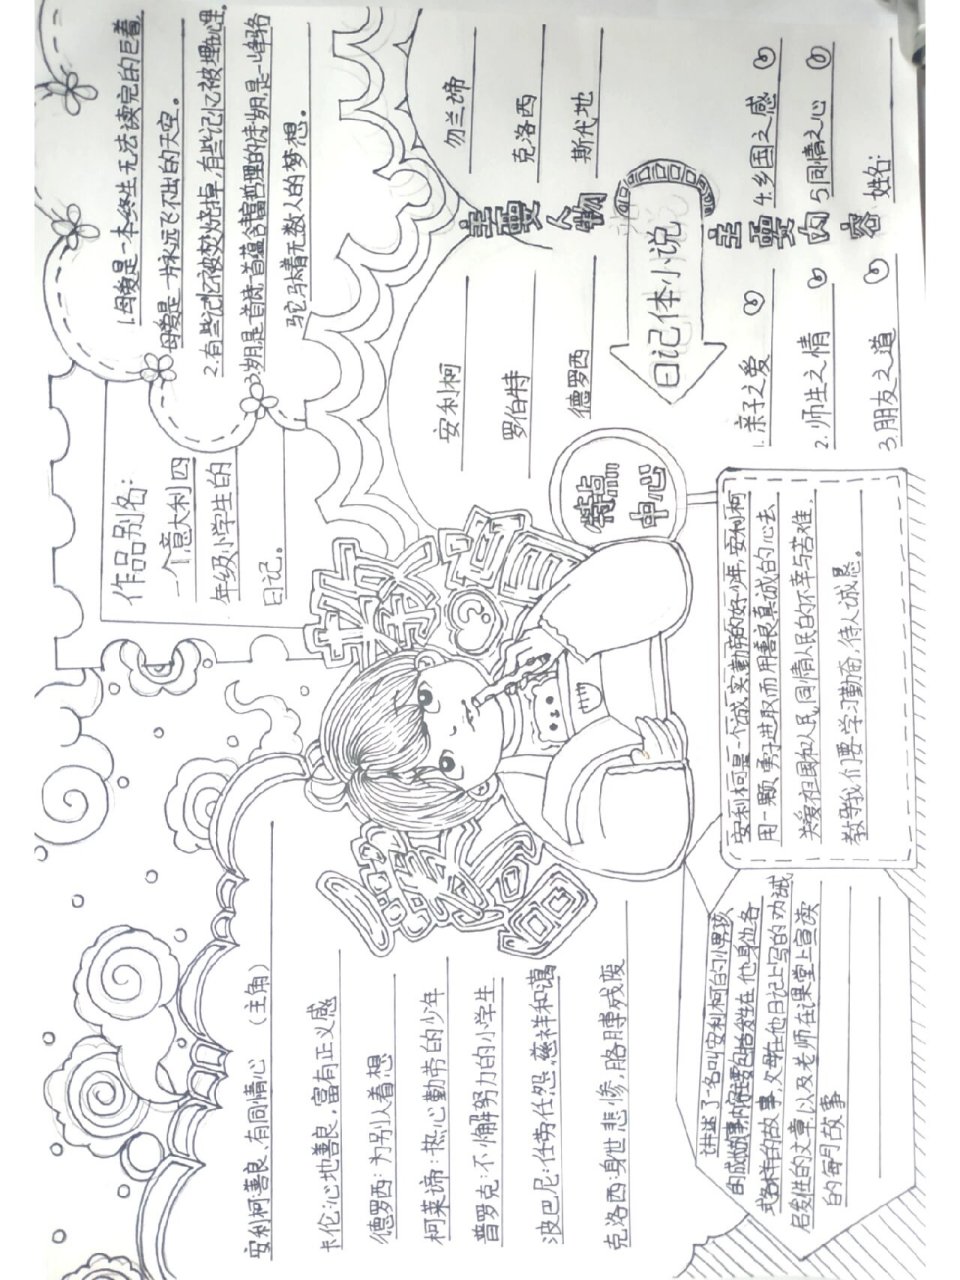 安利柯善良、有同情心 (主角)
卡伦:心地善良,富有正义感
德罗西:为别人着想
柯莱谛:热心勤劳的少年
普罗克:不懈努力的小学生
波巴尼:任劳任怨,慈祥和蔼
克洛西:身世悲惨,胳膊残废
作品别名:
一个意大利四
年级小学生的
日记。
1.母爱是一本终生无法读完的巨着,
母爱是一片永远飞不出的天空。
2.有些记忆被焚烧掉,有些记忆被埋心里。
3.岁月是首诗,一首蕴含富哲理的诗,岁月是一峰骆
驼,驮着无数人的梦想。
主要人物
安利柯
勿兰谛
罗伯特
克洛西
德罗西
斯代地
日记体小说
主要内容
1.亲子之爱
4.乡国之感
2.师生之情
5.同情之心
3.朋友之道
姓名:
特点
中心
讲述了一名叫安利柯的小男孩
的成故事,内容主要包括发生在他身边各
式各样的故事,父母在他日记上写的劝诫
启发性的文章以及老师在课堂上宣读
的每月故事
安利柯是一个诚实勤劳的好少年,安利柯
用一颗勇于进取而用善良真诚的心去
关爱祖国和人民,同情人民的不幸与苦难。
教导我们要学习勤奋,待人诚恳。